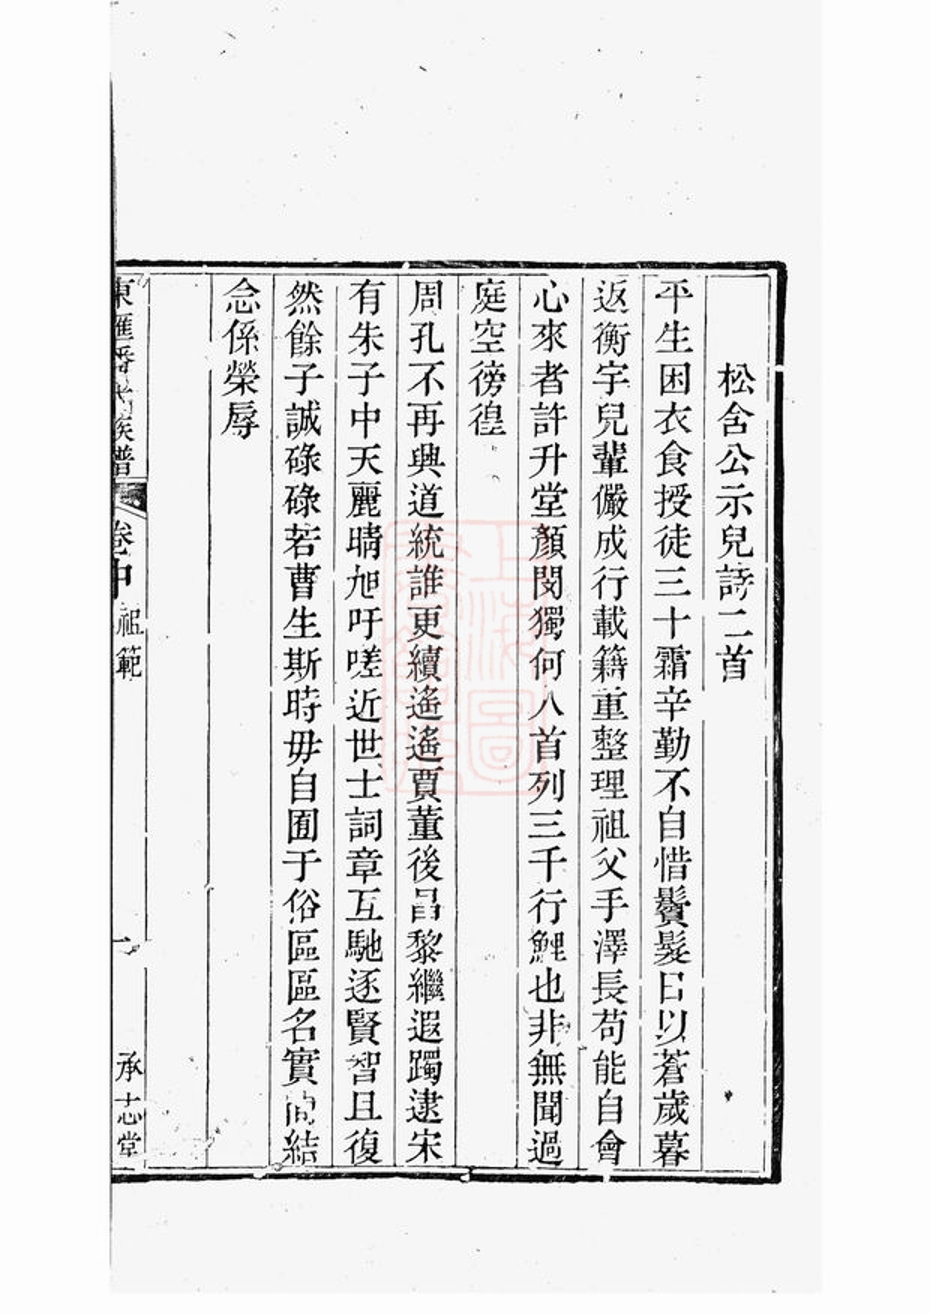 松含公示兒詩二首
平生困衣食授徒三十霜辛勤不自惜鬢髮日以蒼歲暮
返衡宇兒輩儼成行載籍重整理祖父手澤長苟能自會
心來者許升堂顏閔獨何人首列三千行鯉也非無聞過
庭空徬徨
周孔不再興道統誰更續遙遙賈董後昌黎繼遐躅逮宋
有朱子中天麗晴旭吁嗟近世士詞章互馳逐賢智且復
然餘子誠碌碌若曹生斯時毋自囿于俗區區名實間結
念係榮辱
東匯潘氏族譜 卷中 祖範 一 承志堂
上海圖